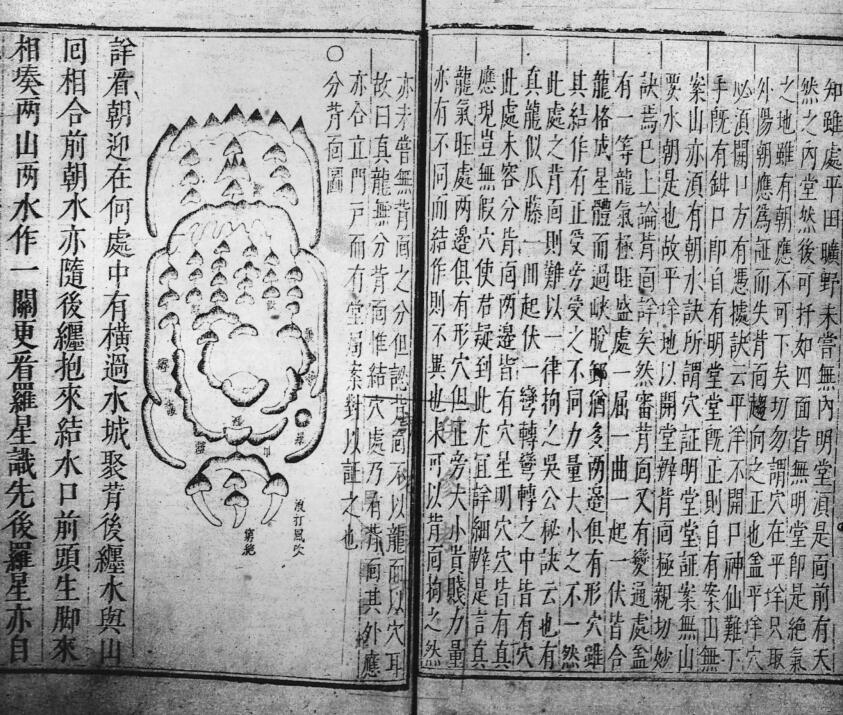 知雖處平田曠野未嘗無內明堂須是面前有天
然之內堂然後可扦如四面皆無明堂即是絕氣
之地雖有朝應不可下矣切勿謂穴在平垟只取
外陽朝應為証而失背面趨向之正也盖平垟穴
必須開口方有憑㨿訣云平洋不開口神仙難下
手既有鉗口即自有明堂堂既正則自有案山無
案山亦須有朝水訣所謂穴証明堂堂証案無山
要水朝是也故平垟地以開堂辨背面極親切妙
訣焉巳上論背面詳矣然審背面又有變通處盖
有一等龍氣極旺盛處一屈一曲一起一伏皆合
龍格成星體而過峽脫卸猶多兩邉俱有形穴雖
其結作有正受旁受之不同力量大小之不一然
此處之背面則難以一律拘之吳公秘訣云也有
真龍似瓜藤一間起伏一彎轉彎轉之中皆有穴
此處未容分背面兩邉皆有穴星明穴穴皆有真
應現豈無假穴使君疑到此尤宜詳細辨是言真
龍氣旺處兩邉俱有形穴但正旁大小貴賤力量
亦有不同而結作則不異也未可以背面拘之然
亦未嘗無背面之分但認背面不以龍而以穴耳
故曰真龍無分背面惟結穴處乃有背面其外應
亦合立門戶而有堂局案對以証之也
○分背面圖
浪打風吹
窮絶
詳看朝迎在何處中有橫過水城聚背後纏水與山
囘相合前朝水亦隨後纏抱來結水口前頭生脚來
相凑两山两水作一關更看羅星識先後羅星亦自